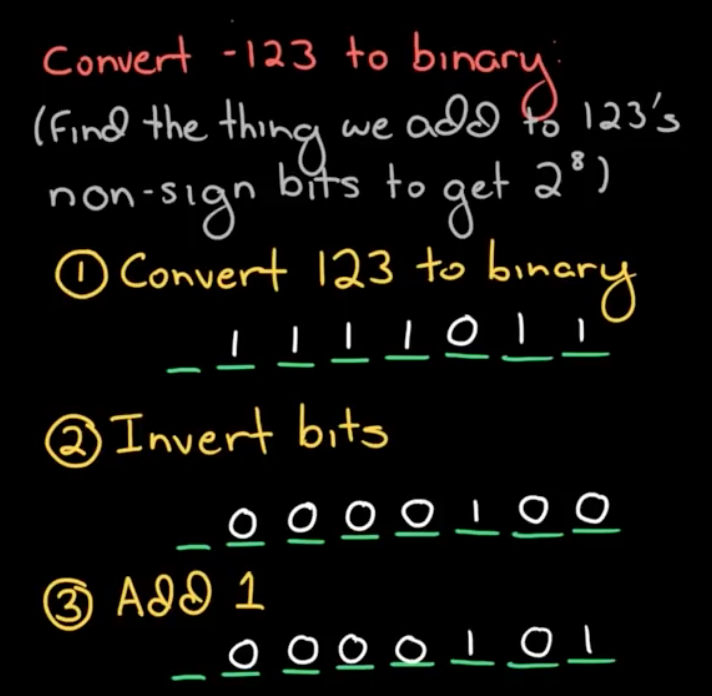 Convert -123 to binary:
(Find the thing we add to 123's
non-sign bits to get 2⁸)
① Convert 123 to binary
_ 1 1 1 1 0 1 1
② Invert bits
_ 0 0 0 0 1 0 0
③ Add 1
_ 0 0 0 0 1 0 1